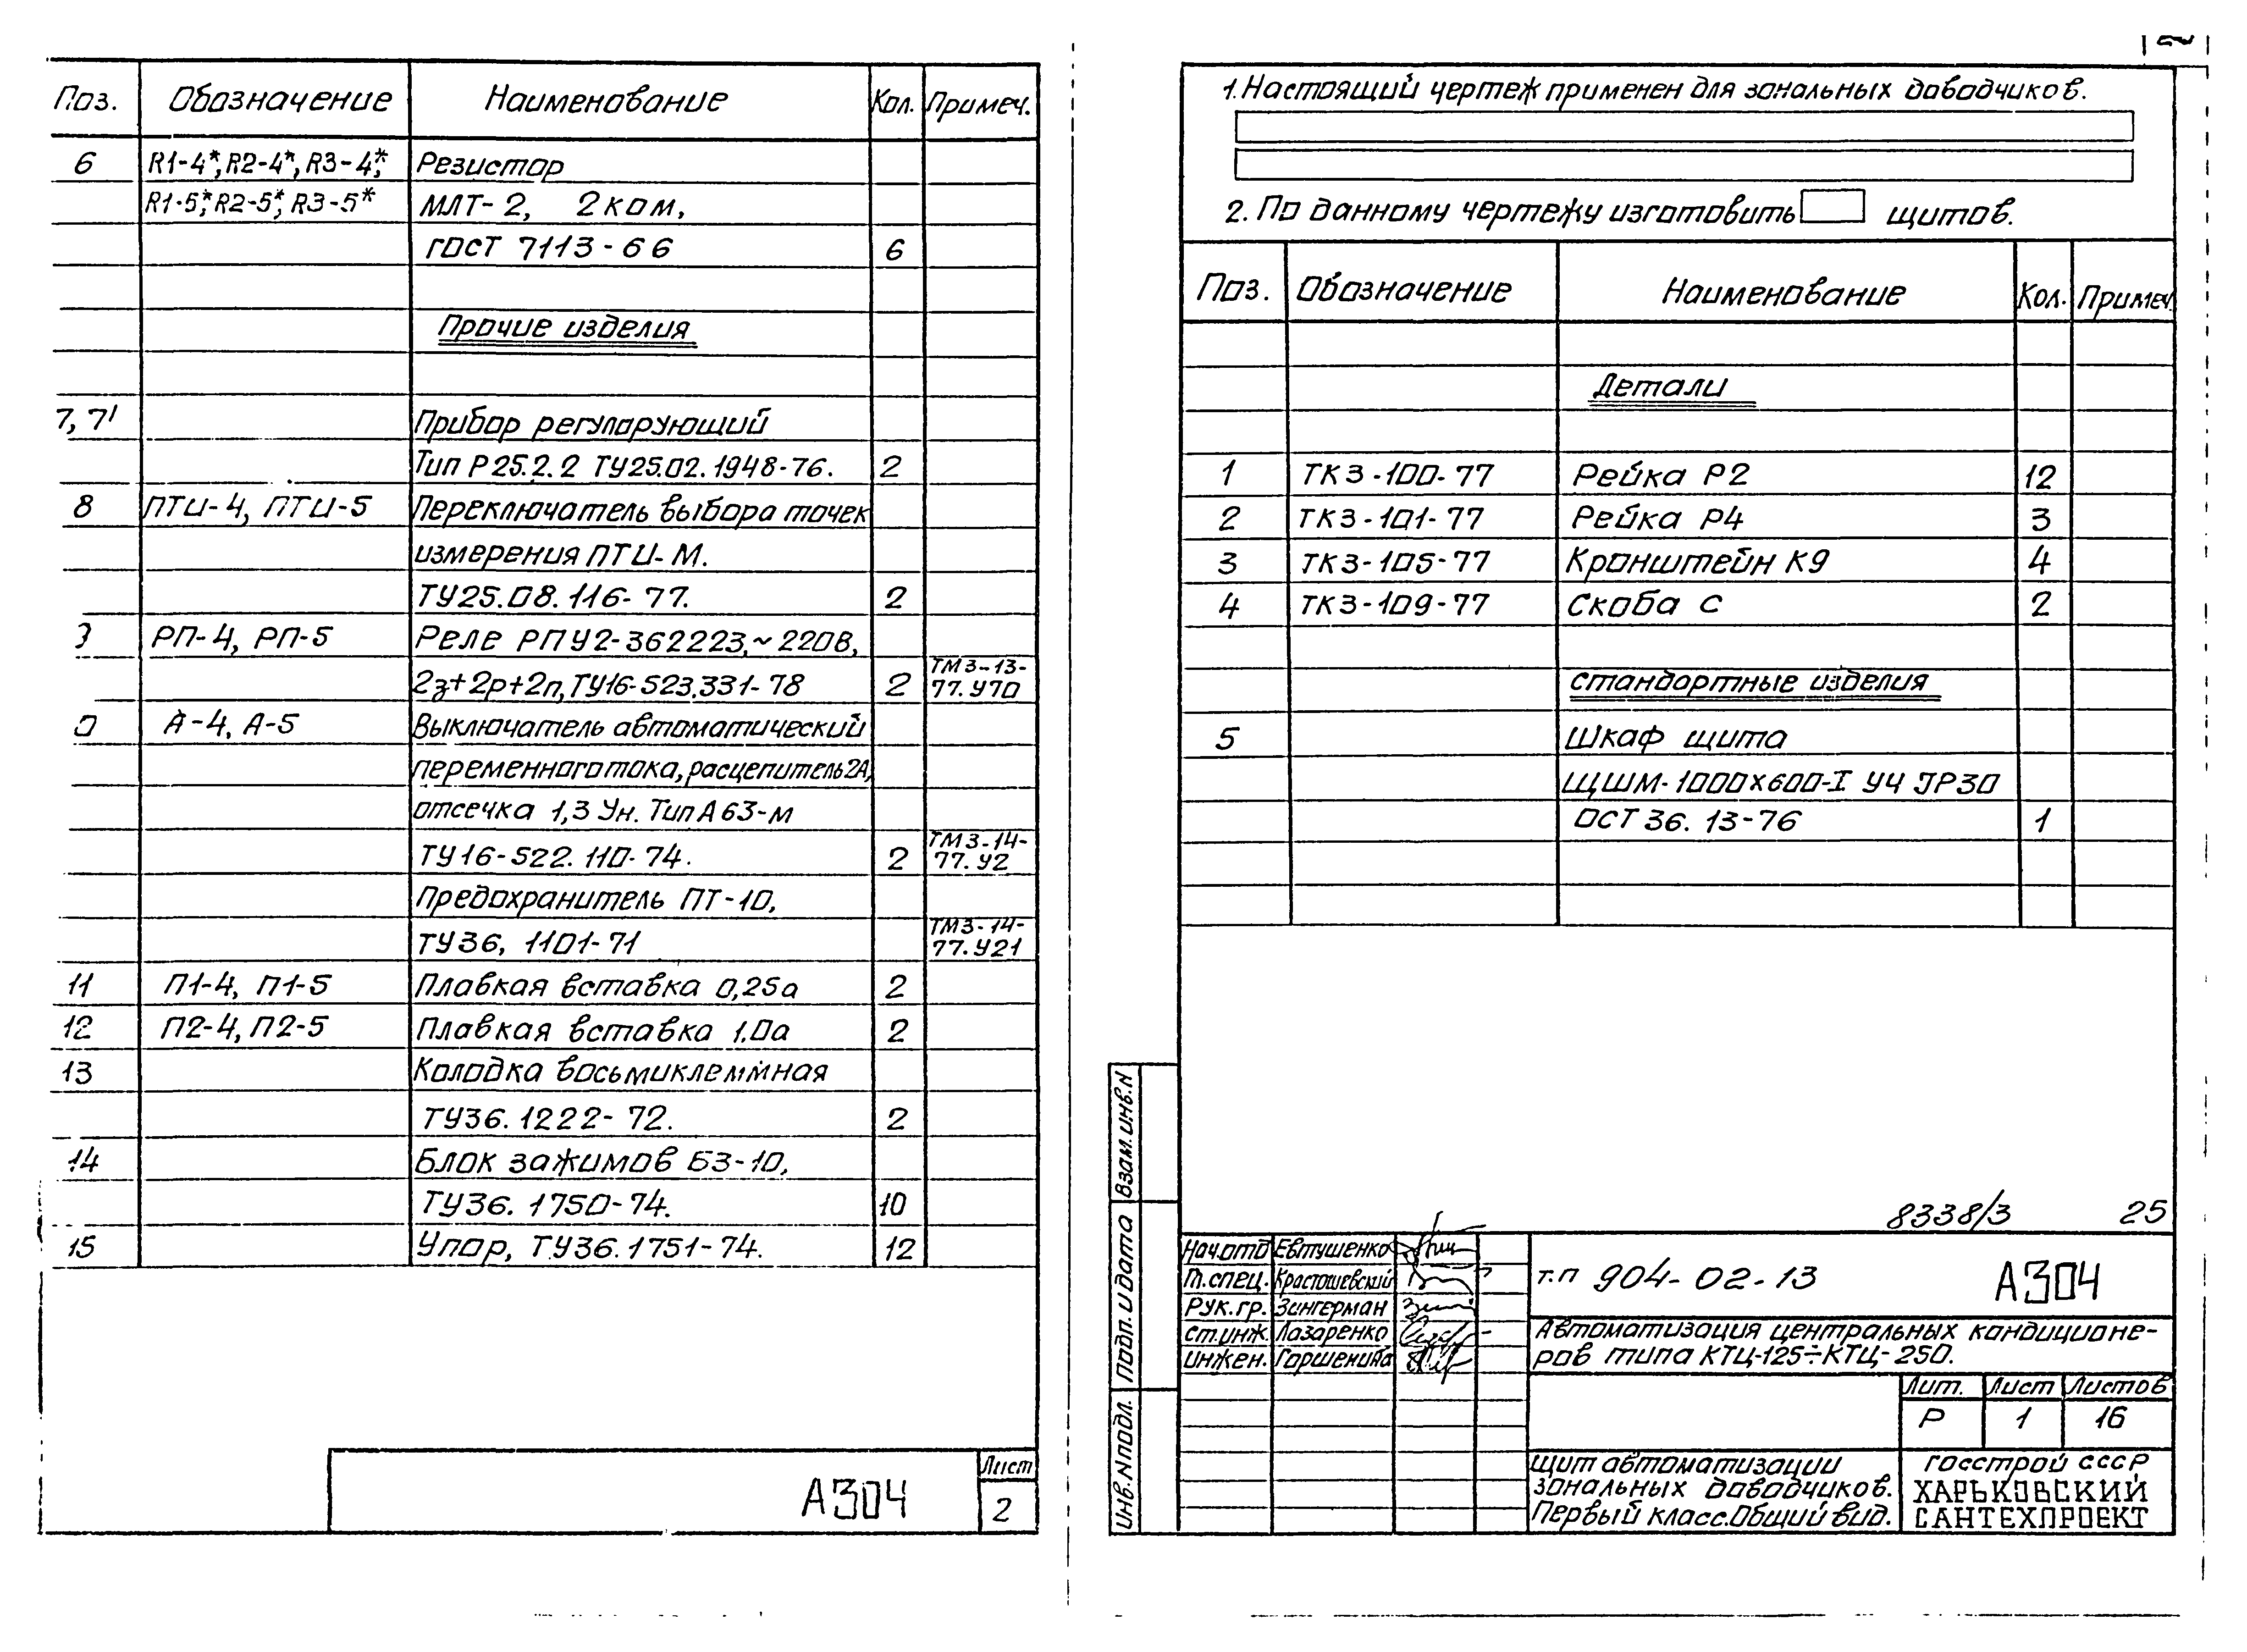 Поз. Обозначение Наименование Кол. Примеч.
6 R1-4*, R2-4*, R3-4*, Резистор
R1-5*, R2-5*, R3-5* МЛТ-2, 2ком,
ГОСТ 7113-66 6
Прочие изделия
7, 7' Прибор регулярующий
Тип Р25.2.2 ТУ25.02.1948-76. 2
8 ПТИ-4, ПТИ-5 Переключатель выбора точек
измерения ПТИ-М.
ТУ25.08.116-77. 2
РП-4, РП-5 Реле РПУ2-362223,~220В,
2з+2р+2п, ТУ16-523.331-78 2 ТМ3-13-77.У70
А-4, А-5 Выключатель автоматический
переменного тока, расцепитель 2А,
отсечка 1,3 Ун. Тип А63-м
ТУ16-522.110-74. 2 ТМ3-14-77.У2
Предохранитель ПТ-10,
ТУ36, 1101-71 ТМ3-14-77.У21
11 П1-4, П1-5 Плавкая вставка 0,25а 2
12 П2-4, П2-5 Плавкая вставка 1.0а 2
13 Колодка восьмиклеммная
ТУ36.1222-72. 2
14 Блок зажимов БЗ-10,
ТУ36.1750-74. 10
15 Упор, ТУ36.1751-74. 12
А304
Лист
2
1. Настоящий чертеж применен для зональных доводчиков.
2. По данному чертежу изготовить щитов.
Поз. Обозначение Наименование Кол. Примеч.
Детали
1 ТК3-100-77 Рейка Р2 12
2 ТК3-101-77 Рейка Р4 3
3 ТК3-105-77 Кронштейн К9 4
4 ТК3-109-77 Скоба С 2
стандортные изделия
5 Шкаф щита
ЩШМ-1000х600-I УЧ IP30
ОСТ 36.13-76 1
8338/3 25
Взам.инв.N
Подп. и дата
Инв.Nподл.
Нач.отд Евтушенко
Гл.спец. Красташевский
Рук.гр. Зингерман
ст.инж. Лазаренко
инжен. Горшенина
т.п 904-02-13 А304
Автоматизация центральных кондиционе-
ров типа КТЦ-125÷КТЦ-250.
Лит. Лист Листов
Р 1 16
щит автоматизации
зональных доводчиков.
Первый класс.Общий вид.
госстрой СССР
ХАРЬКОВСКИЙ
САНТЕХПРОЕКТ